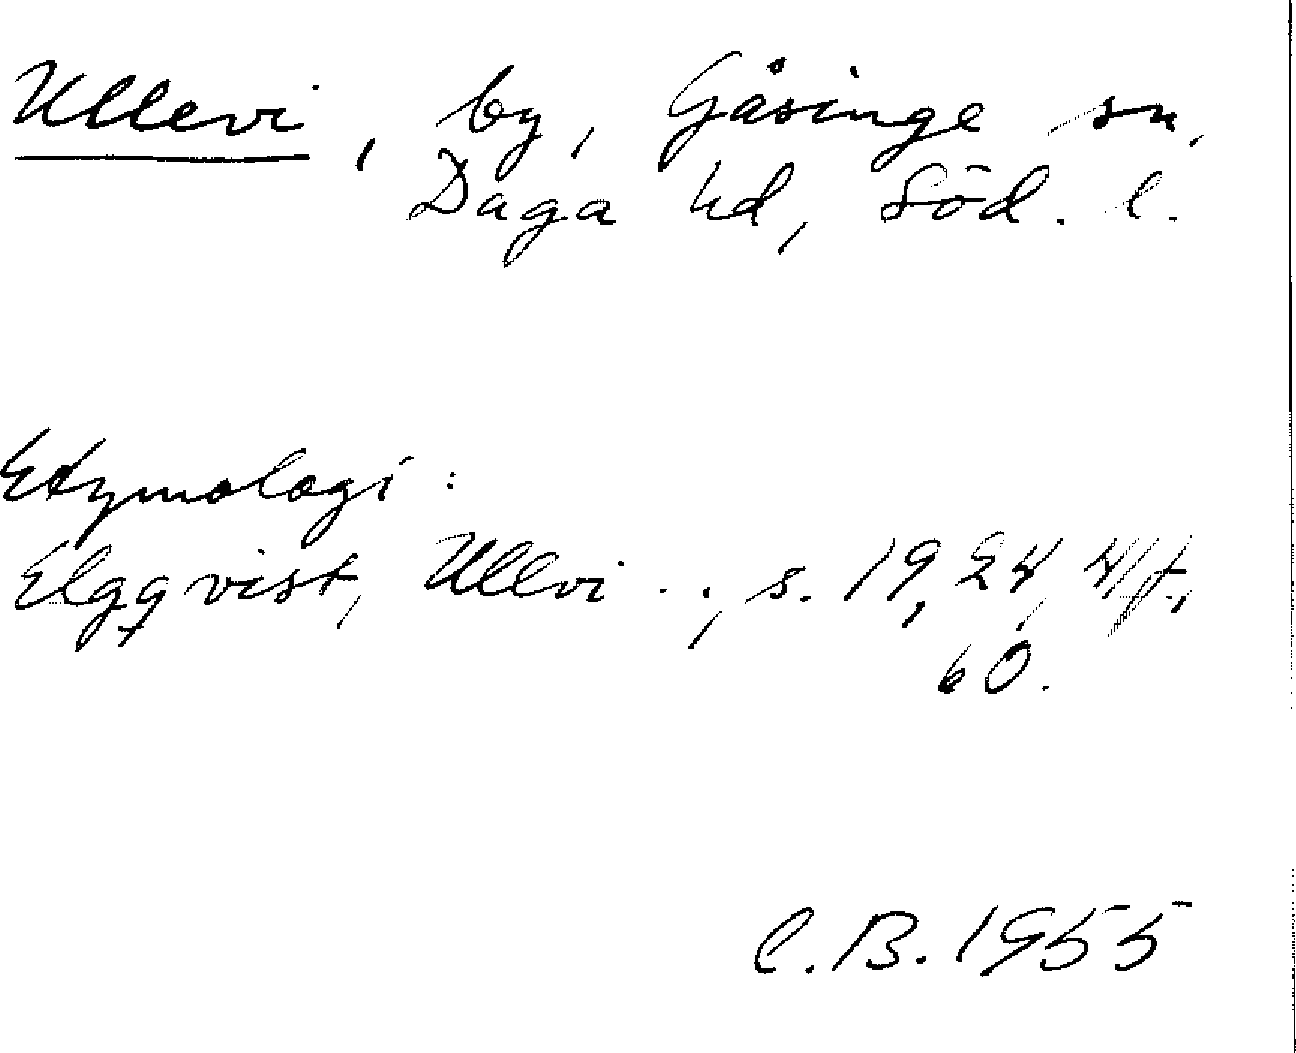 Ullevi, by, Gåsinge sn,
Daga hd, Söd. l.
Etymologi:
Elgqvist, Ullvi . . , s. 19, 24,
60.
C.B. 1955